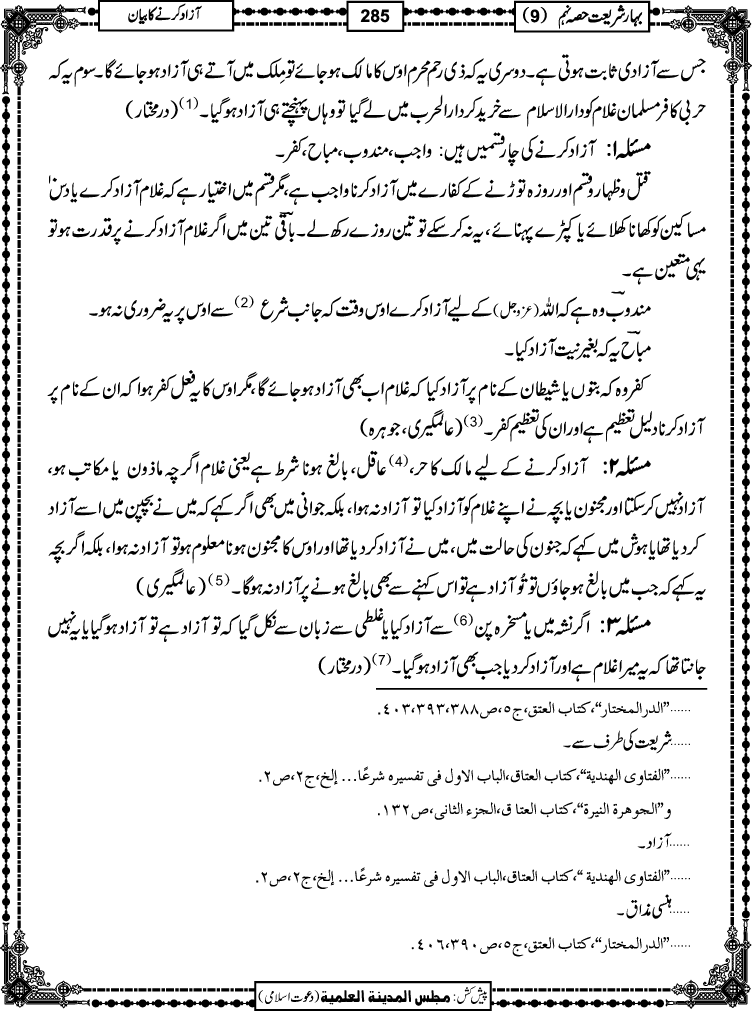 بہار شریعت حصہ نہم (9)
285
آزاد کرنے کا بیان
جس سے آزادی ثابت ہوتی ہے۔ دوسری یہ کہ ذی رحم محرم اوس کا مالک ہوجائے تو مِلک میں آتے ہی آزاد ہوجائے گا۔ سوم یہ کہ
حربی کافر مسلمان غلام کو دارالاسلام سے خرید کر دارالحرب میں لے گیا تو وہاں پہنچتے ہی آزاد ہوگیا۔(1) (درمختار)
مسئلہ ۱: آزاد کرنے کی چار قسمیں ہیں: واجب، مندوب، مباح، کفر۔
قتل و ظہار و قسم اور روزہ توڑنے کے کفارے میں آزاد کرنا واجب ہے، مگر قسم میں اختیار ہے کہ غلام آزاد کرے یا دس ۱۰
مساکین کو کھانا کھلائے یا کپڑے پہنائے، یہ نہ کرسکے تو تین روزے رکھ لے۔ باقی تین میں اگر غلام آزاد کرنے پر قدرت ہو تو
یہی متعین ہے۔
مندوب وہ ہے کہ اللہ (عزوجل) کے لیے آزاد کرے اوس وقت کہ جانب شرع (2) سے اوس پر یہ ضروری نہ ہو۔
مباح یہ کہ بغیر نیت آزاد کیا۔
کفر وہ کہ بتوں یا شیطان کے نام پر آزاد کیا کہ غلام اب بھی آزاد ہوجائے گا، مگر اوس کا یہ فعل کفر ہوا کہ ان کے نام پر
آزاد کرنا دلیل تعظیم ہے اور ان کی تعظیم کفر۔(3) (عالمگیری، جوہرہ)
مسئلہ ۲: آزاد کرنے کے لیے مالک کا حر،(4) عاقل، بالغ ہونا شرط ہے یعنی غلام اگرچہ ماذون یا مکاتب ہو،
آزاد نہیں کرسکتا اور مجنون یا بچہ نے اپنے غلام کو آزاد کیا تو آزاد نہ ہوا، بلکہ جوانی میں بھی اگر کہے کہ میں نے بچپن میں اسے آزاد
کردیا تھا یا ہوش میں کہے کہ جنون کی حالت میں، میں نے آزاد کردیا تھا اور اوس کا مجنون ہونا معلوم ہو تو آزاد نہ ہوا، بلکہ اگر بچہ
یہ کہے کہ جب میں بالغ ہوجاؤں تو تُو آزاد ہے تو اس کہنے سے بھی بالغ ہونے پر آزاد نہ ہوگا۔(5) (عالمگیری)
مسئلہ ۳: اگر نشہ میں یا مسخرہ پن (6) سے آزاد کیا یا غلطی سے زبان سے نکل گیا کہ تو آزاد ہے تو آزاد ہوگیا یا یہ نہیں
جانتا تھا کہ یہ میرا غلام ہے اور آزاد کردیا جب بھی آزاد ہوگیا۔(7) (درمختار)
......"الدرالمختار"، کتاب العتق، ج٥، ص٣٨٨،٣٩٣،٤٠٣.
......شریعت کی طرف سے۔
......"الفتاوی الھندیة"، کتاب العتاق، الباب الاول فی تفسیرہ شرعًا... إلخ، ج٢، ص٢.
و"الجوھرة النیرة"، کتاب العتا ق، الجزء الثانی، ص١٣٢.
......آزاد۔
......"الفتاوی الھندیة "، کتاب العتاق، الباب الاول فی تفسیرہ شرعًا... إلخ، ج٢، ص٢.
......ہنسی مذاق۔
......"الدرالمختار"، کتاب العتق، ج٥، ص٣٩٠،٤٠٦.
پیش کش: مجلس المدینة العلمیة (دعوت اسلامی)